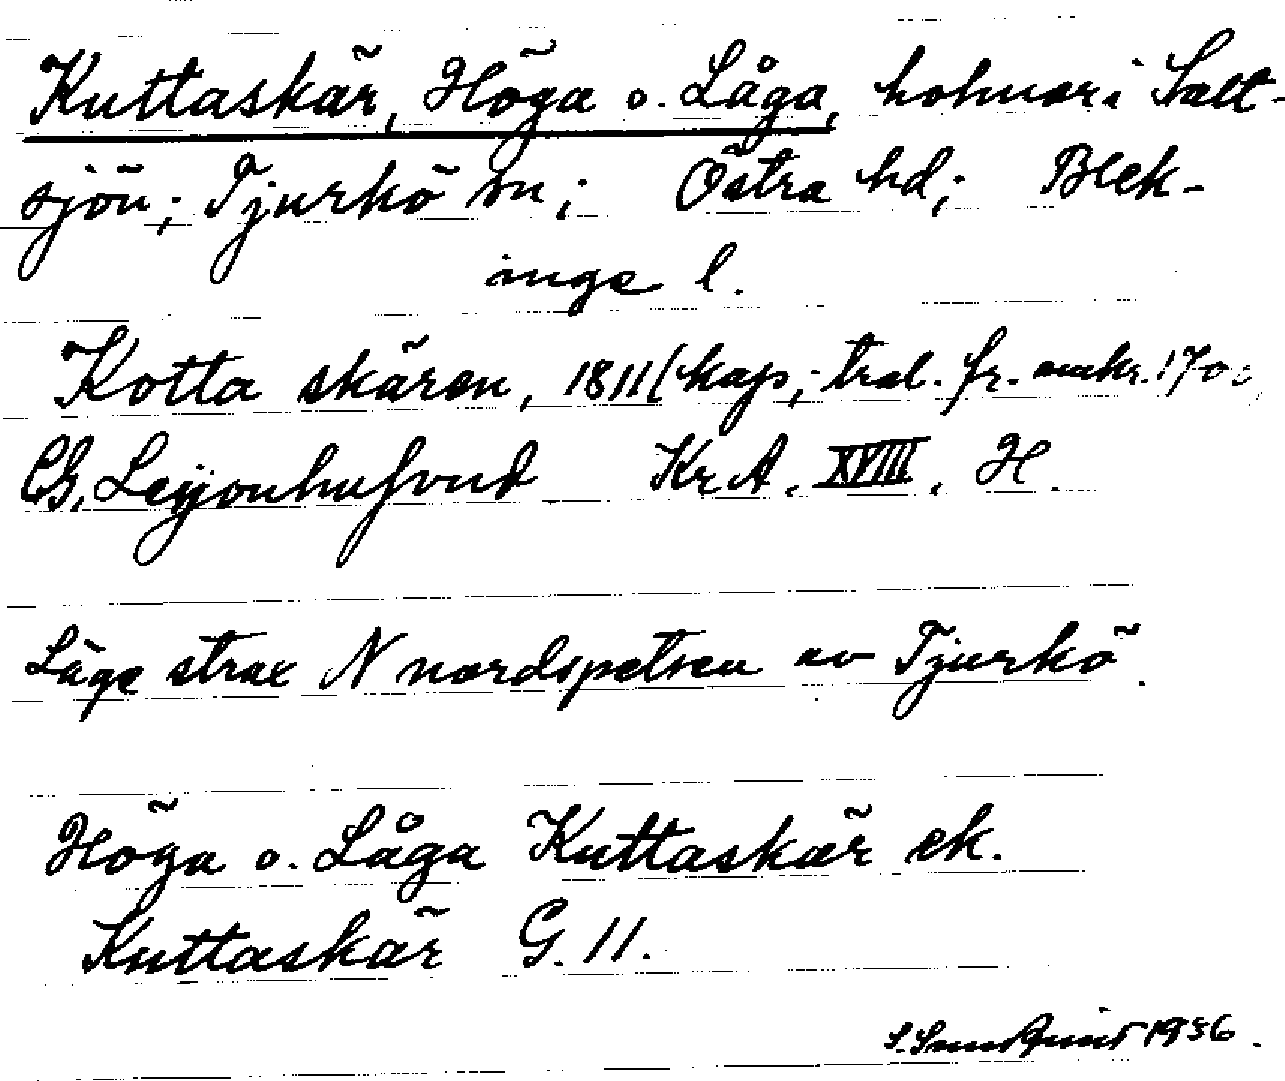 Kuttaskär, Höga o. Låga, holmar i Salt-
sjön; Tjurkö sn; Östra hd; Blek-
inge l.
Kotta skären, 1811 (kap; tral. fr. omkr. 170
Ch. Leyjonhufvud Kr A. XVIII. H.
Läge strax N nordspetsen av Tjurkö.
Höga o. Låga Kuttaskär ek.
Kuttaskär G. 11.
S. 1936.